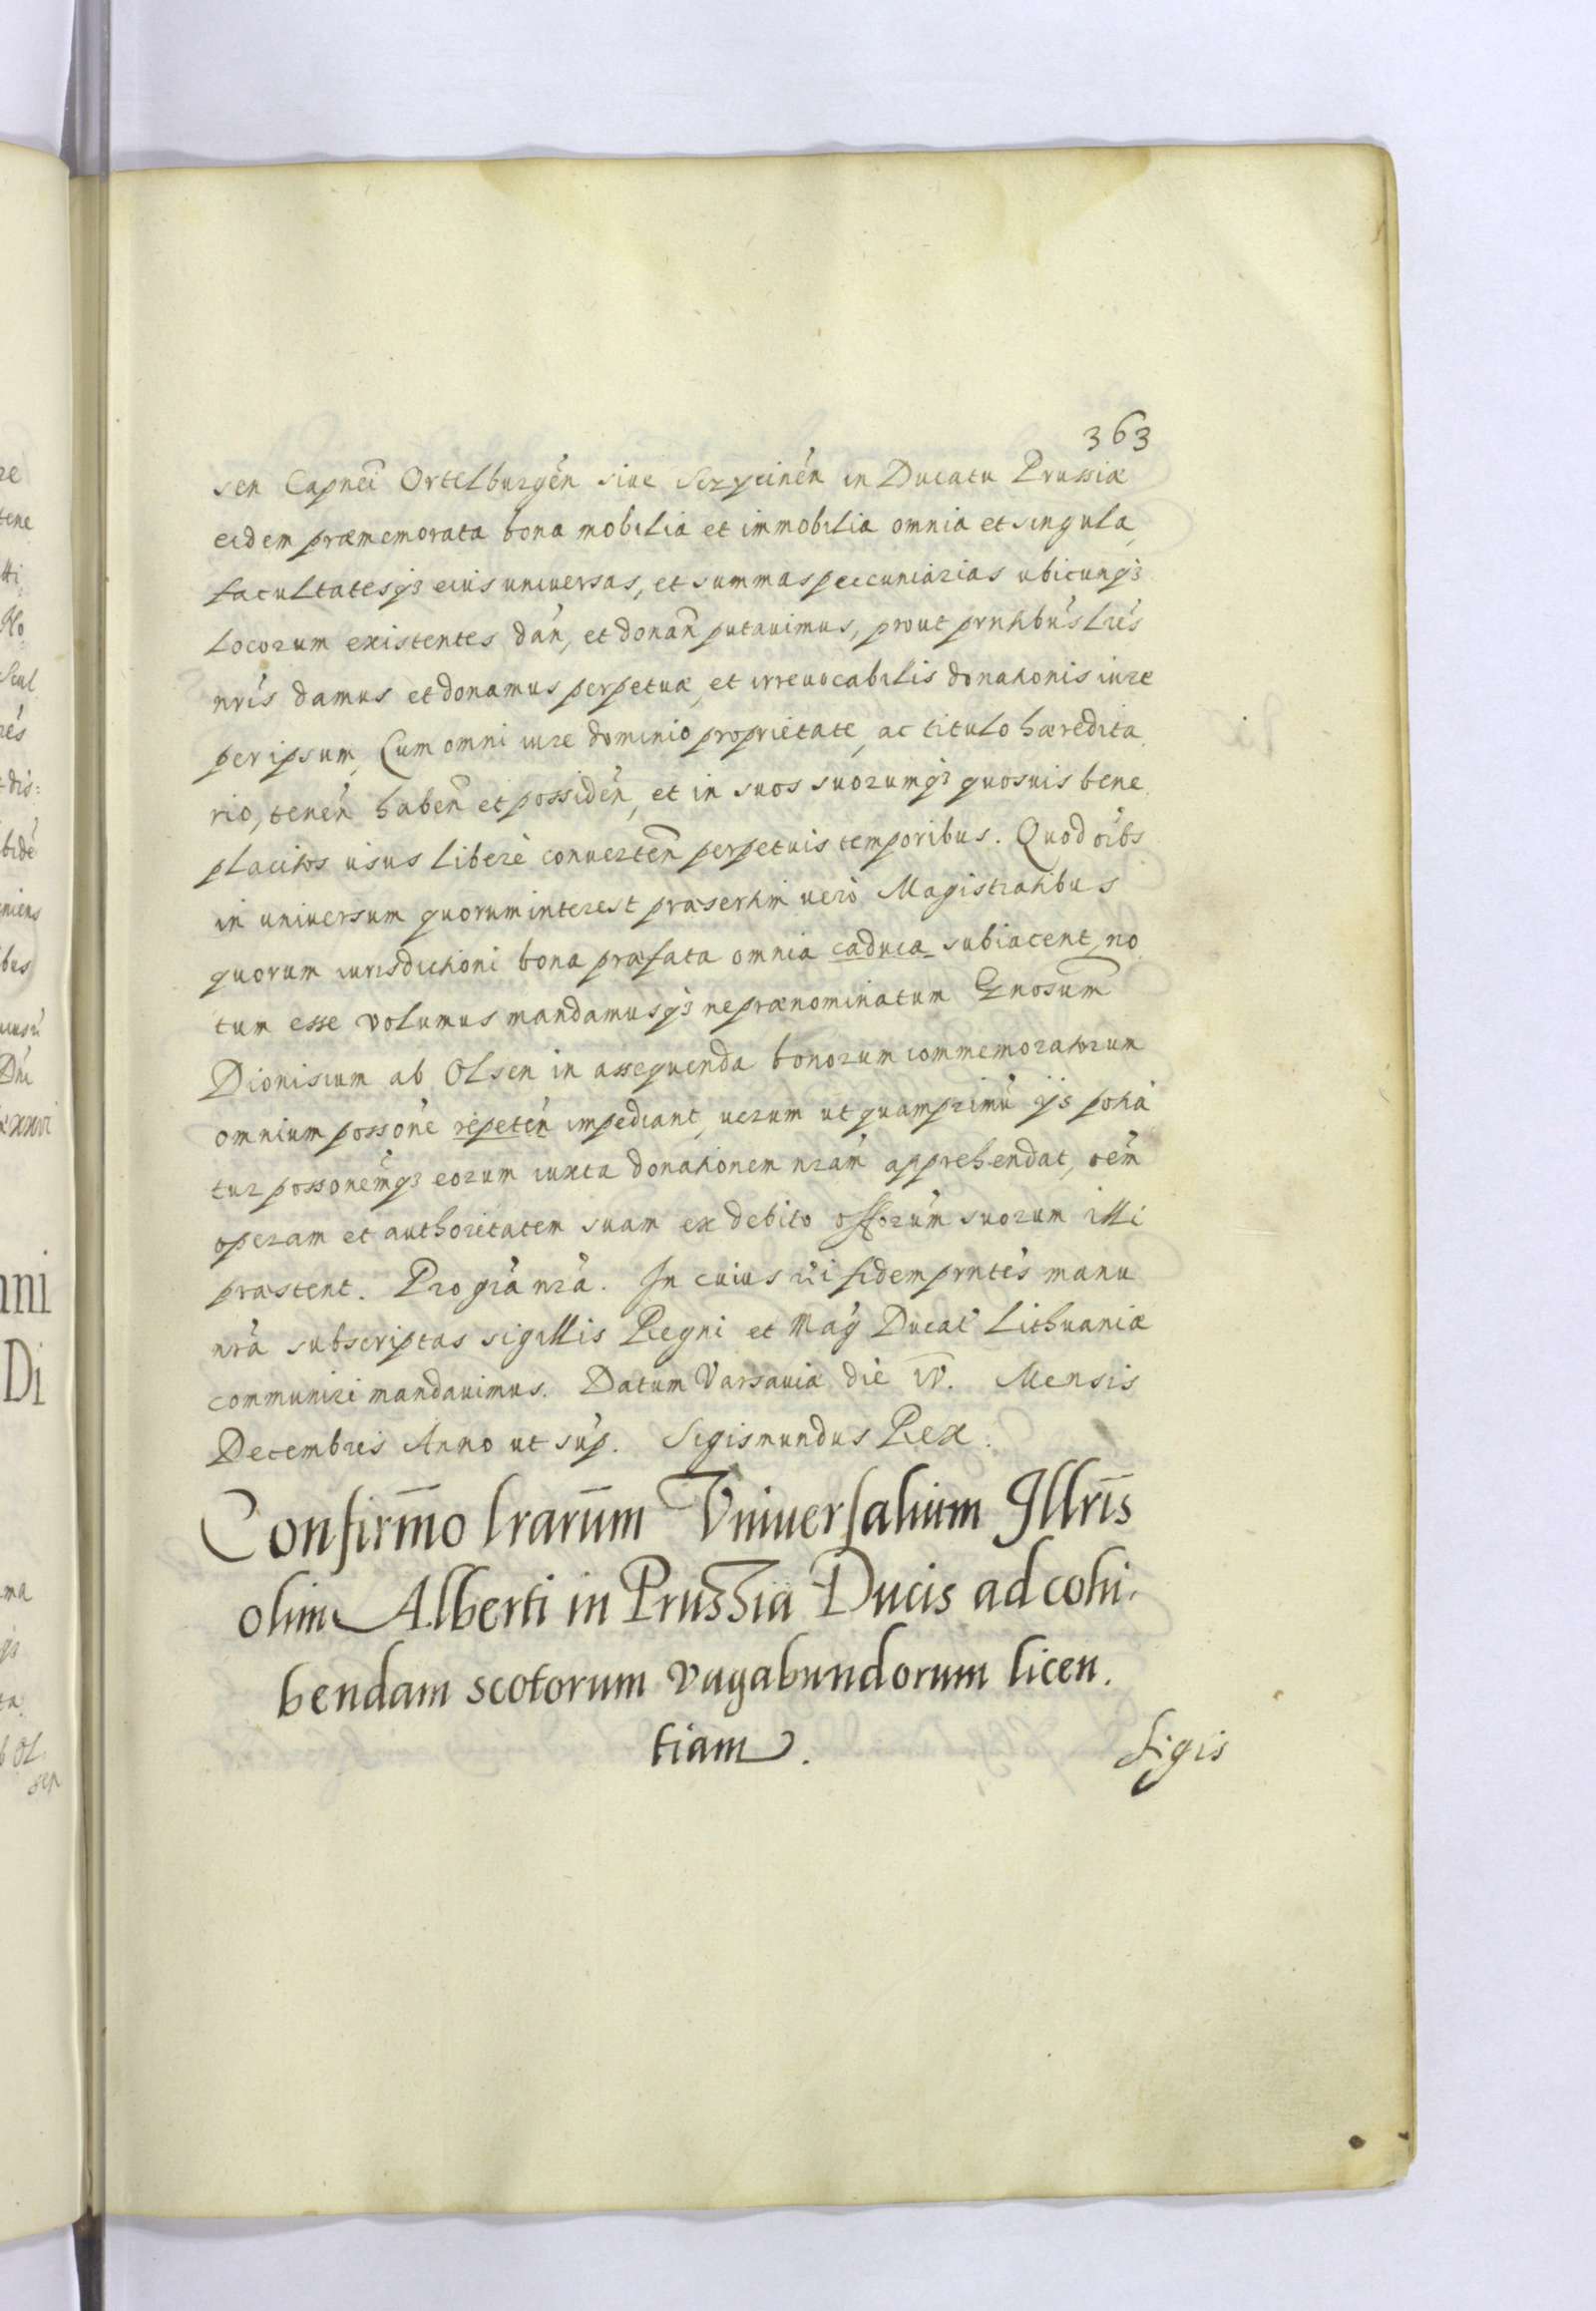 363
sen Capnei Ortelburgen siue Sczycinen in Ducatu Prussiæ
eidem præmemorata bona mobilia et immobilia omnia et singula,
facultatesq3 eius uniuersas, et summas pecuniarias ubicunq3
locorum existentes dan, et donan putauimus, prout prntibus lris
nris damus et donamus perpetuæ, et irreuocabilis donationis iure
per ipsum, Cum omni iure dominio proprietate, ac titulo hæredita
rio, tenen haben et possiden, et in suos suorumq3 quosuis bene
placitos usus liberè conuerten perpetuis temporibus. Quod oibs
in uniuersum quorum interest præsertim uerò Magistratibus
quorum iurisdictioni bona præfata omnia caduca subiacent, no
tum esse volumus mandamusq3 ne prænominatum Gnosum
Dionisium ab Olsen in assequenda bonorum commemoratorum
omnium possone repeten impediant, uerum ut quamprimu ijs potia
tur possonemq3 eorum iuxta donationem nram apprehendat, oem
operam et authoritatem suam ex debito offorum suorum illi
præstent. Pro gra nra. In cuius rei fidem prntes manu
nra subscriptas sigillis Regni et Mag Ducat Lithuaniæ
communiri mandauimus. Datum Varsauiæ die IV. Mensis
Decembris Anno ut sup. Sigismundus Rex.
Confirmo lrarum Vniuersalium Illris
olim Alberti in Prussia Ducis ad cohi.
bendam scotorum vagabundorum licen.
tiam.
Sigis